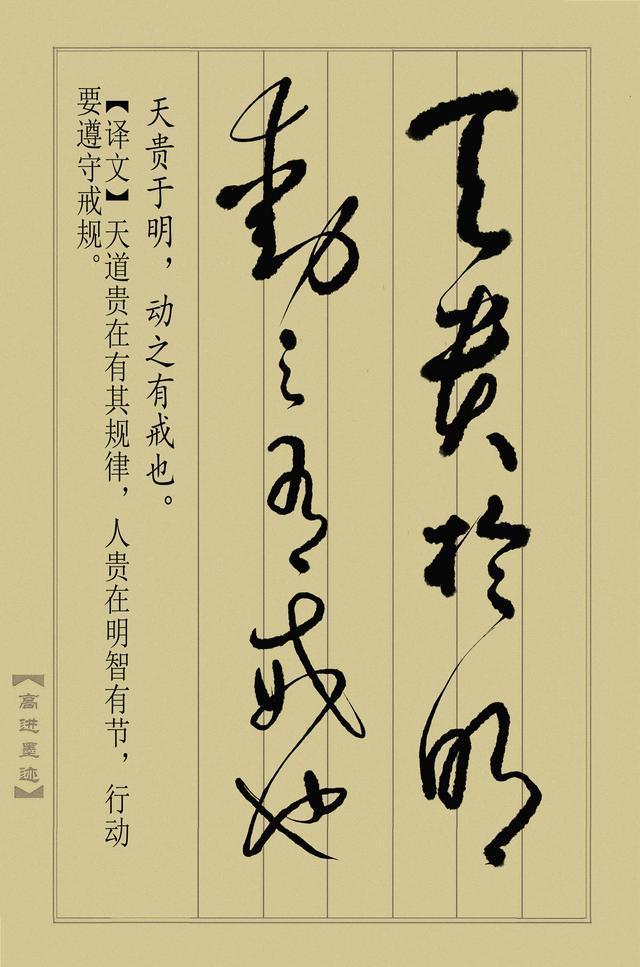 天貴於明
動之有戒也
天贵于明，动之有戒也。
【译文】天道贵在有其规律，人贵在明智有节，行动
要遵守戒规。
【高进墨迹】